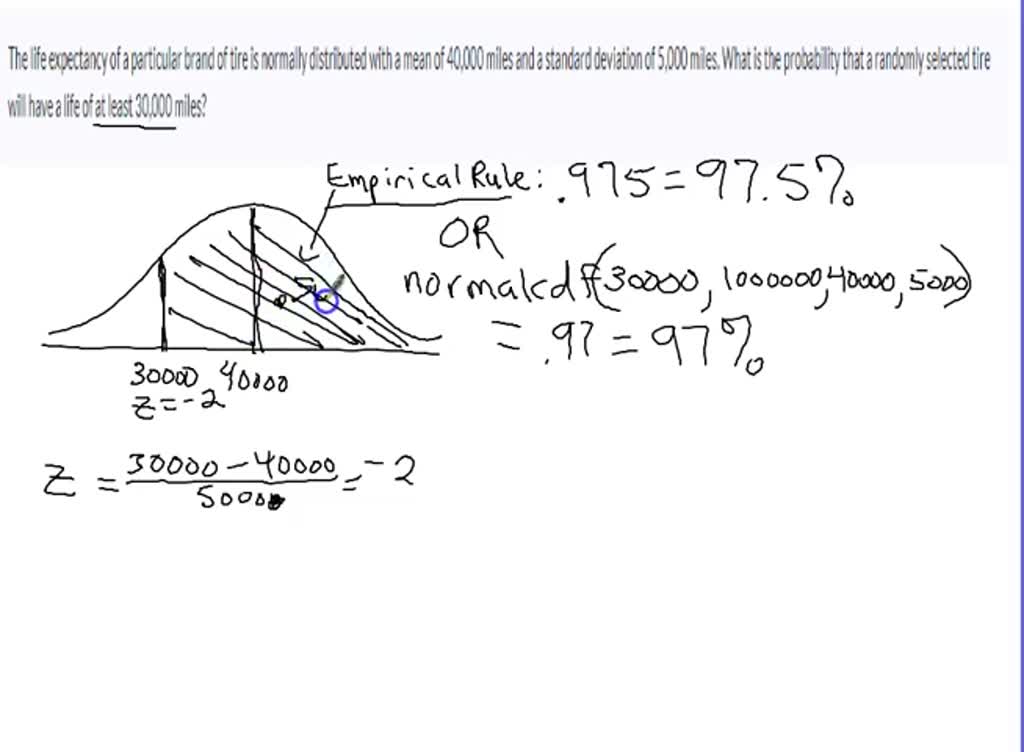 The life expectancy of a particular brand of tire is normally distributed with a mean of 40,000 miles and a standard deviation of 5,000 miles. What is the probability that a randomly selected tire
will have a life of at least 30,000 miles?
Empirical Rule: .975 = 97.5%
OR
normalcdf(30000, 1000000, 40000, 5000)
= .97 = 97%
30000 40000
z = -2
z = 30000 - 40000 / 5000 = -2